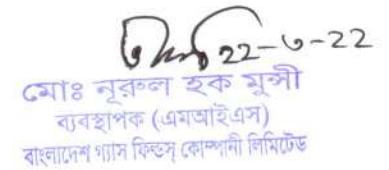 ২২-৬-২২
মোঃ নূরুল হক মুন্সী
ব্যবস্থাপক (এমআইএস)
বাংলাদেশ গ্যাস ফিল্ডস্ কোম্পানী লিমিটেড